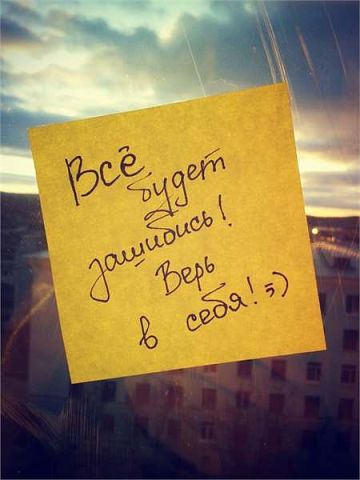 Всё
будет
зашибись!
Верь
в себя! ;)